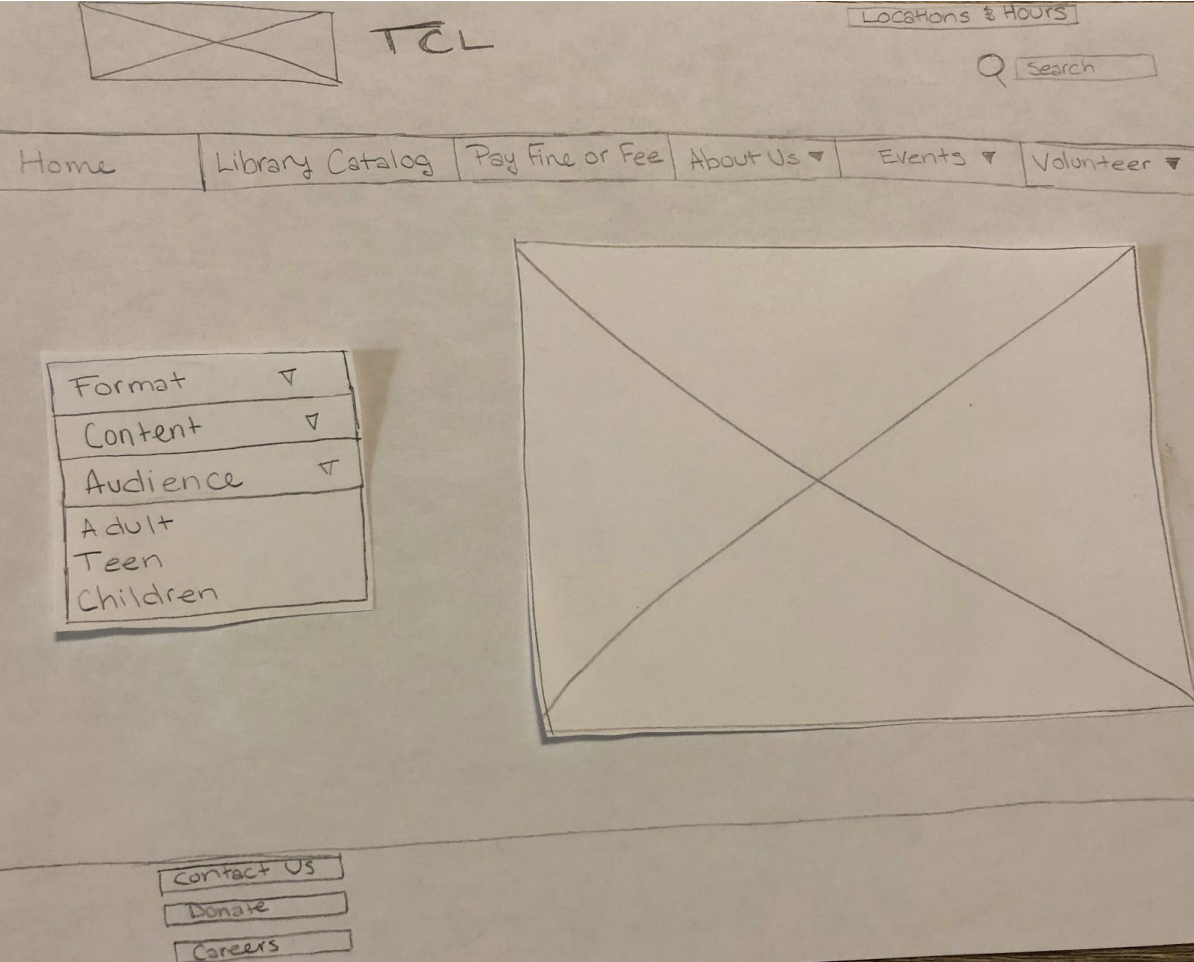 TCL
Locations & Hours
Search
Home
Library Catalog
Pay Fine or Fee
About Us
Events
Volunteer
Format
Content
Audience
Adult
Teen
Children
Contact Us
Donate
Careers